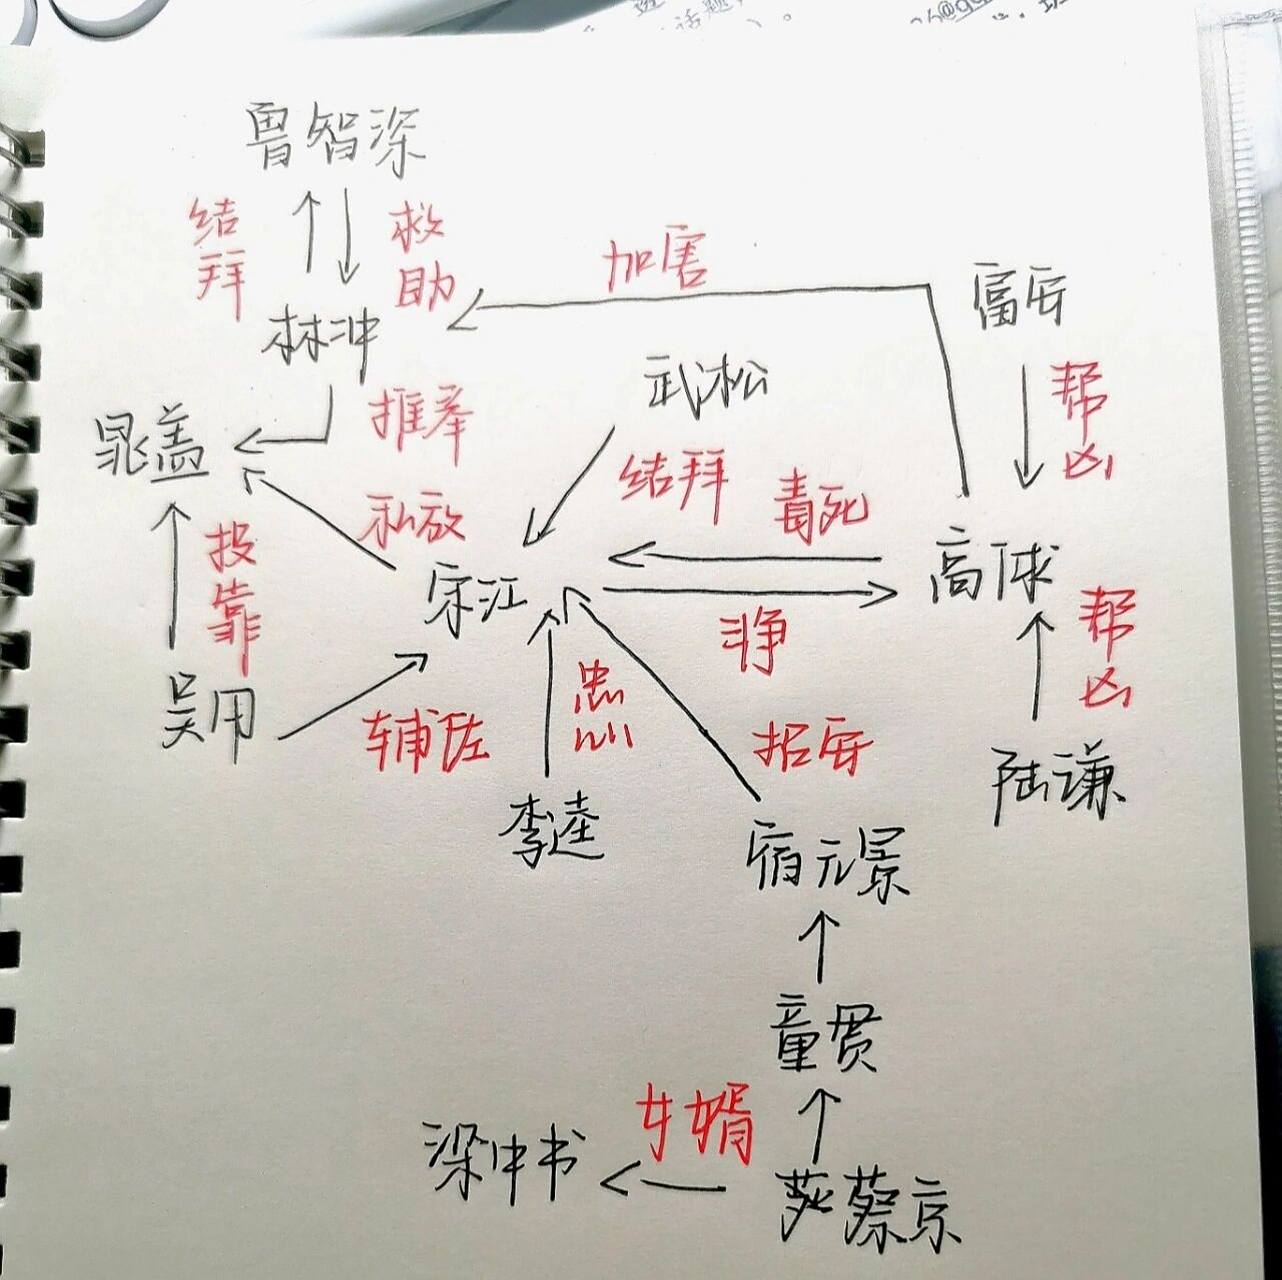 话题
鲁智深
结拜
救助
加害
富安
林冲
武松
帮凶
推举
晁盖
结拜
毒死
私放
投靠
宋江
高俅
斗争
帮凶
吴用
辅佐
忠心
招安
陆谦
李逵
宿元景
童贯
女婿
梁中书
蔡京